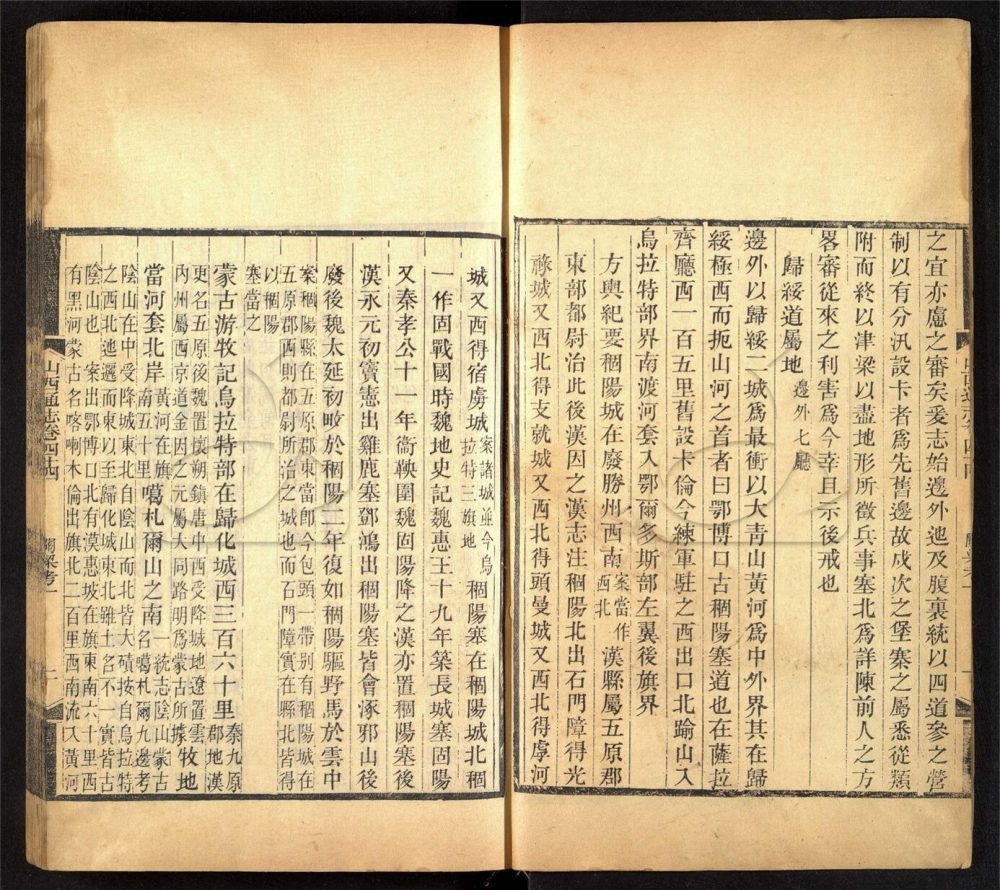 之宜亦慮之審矣爰志始邊外迆及腹裏統以四道參之營
制以有分汛設卡者爲先舊邊故戍次之堡寨之屬悉從類
附而終以津梁以盡地形所徵兵事塞北爲詳陳前人之方
畧審從來之利害爲今幸且示後戒也
歸綏道屬地邊外七廳
邊外以歸綏二城爲最衝以大靑山黃河爲中外界其在歸
綏極西而扼山河之首者曰鄂博口古稒陽塞道也在薩拉
齊廳西一百五里舊設卡倫今練軍駐之西出口北踰山入
烏拉特部界南渡河套入鄂爾多斯部左翼後旗界
方輿紀要稒陽城在廢勝州西南案當作西北漢縣屬五原郡
東部都尉治此後漢因之漢志注稒陽北出石門障得光
祿城又西北得支就城又西北得頭曼城又西北得虖河
城又西得宿虜城案諸城並今烏拉特三旗地稒陽塞在稒陽城北稒
一作固戰國時魏地史記魏惠王十九年築長城塞固陽
又秦孝公十一年衞鞅圍魏固陽降之漢亦置稒陽塞後
漢永元初竇憲出雞鹿塞鄧鴻出稒陽塞皆會涿邪山後
廢後魏太延初畋於稒陽二年復如稒陽驅野馬於雲中
案稒陽縣在五原郡東當卽今包頭一帶別有稒陽城在
五原郡西則都尉所治之城也而石門障實在縣北皆得
以稒陽
塞當之
蒙古游牧記烏拉特部在歸化城西三百六十里秦九原郡地漢
更名五原後魏置懷朔鎭唐中西受降城地遼置雲
內州屬西京道金因之元屬大同路明爲蒙古所據牧地
當河套北岸黃河在旗南五十里噶札爾山之南一統志陰山蒙古名噶札爾九邊考
陰山在中受降城東北自陰山而北皆大磧按自烏拉特
之西北迤邐而東以至歸化城東北雖土名不一實皆古
陰山也　案出鄂博口北有漠惠坡在旗東南六十里西
有黑河蒙古名喀喇木倫出旗北二百里西南流入黃河
山西通志卷四十四
關梁考一